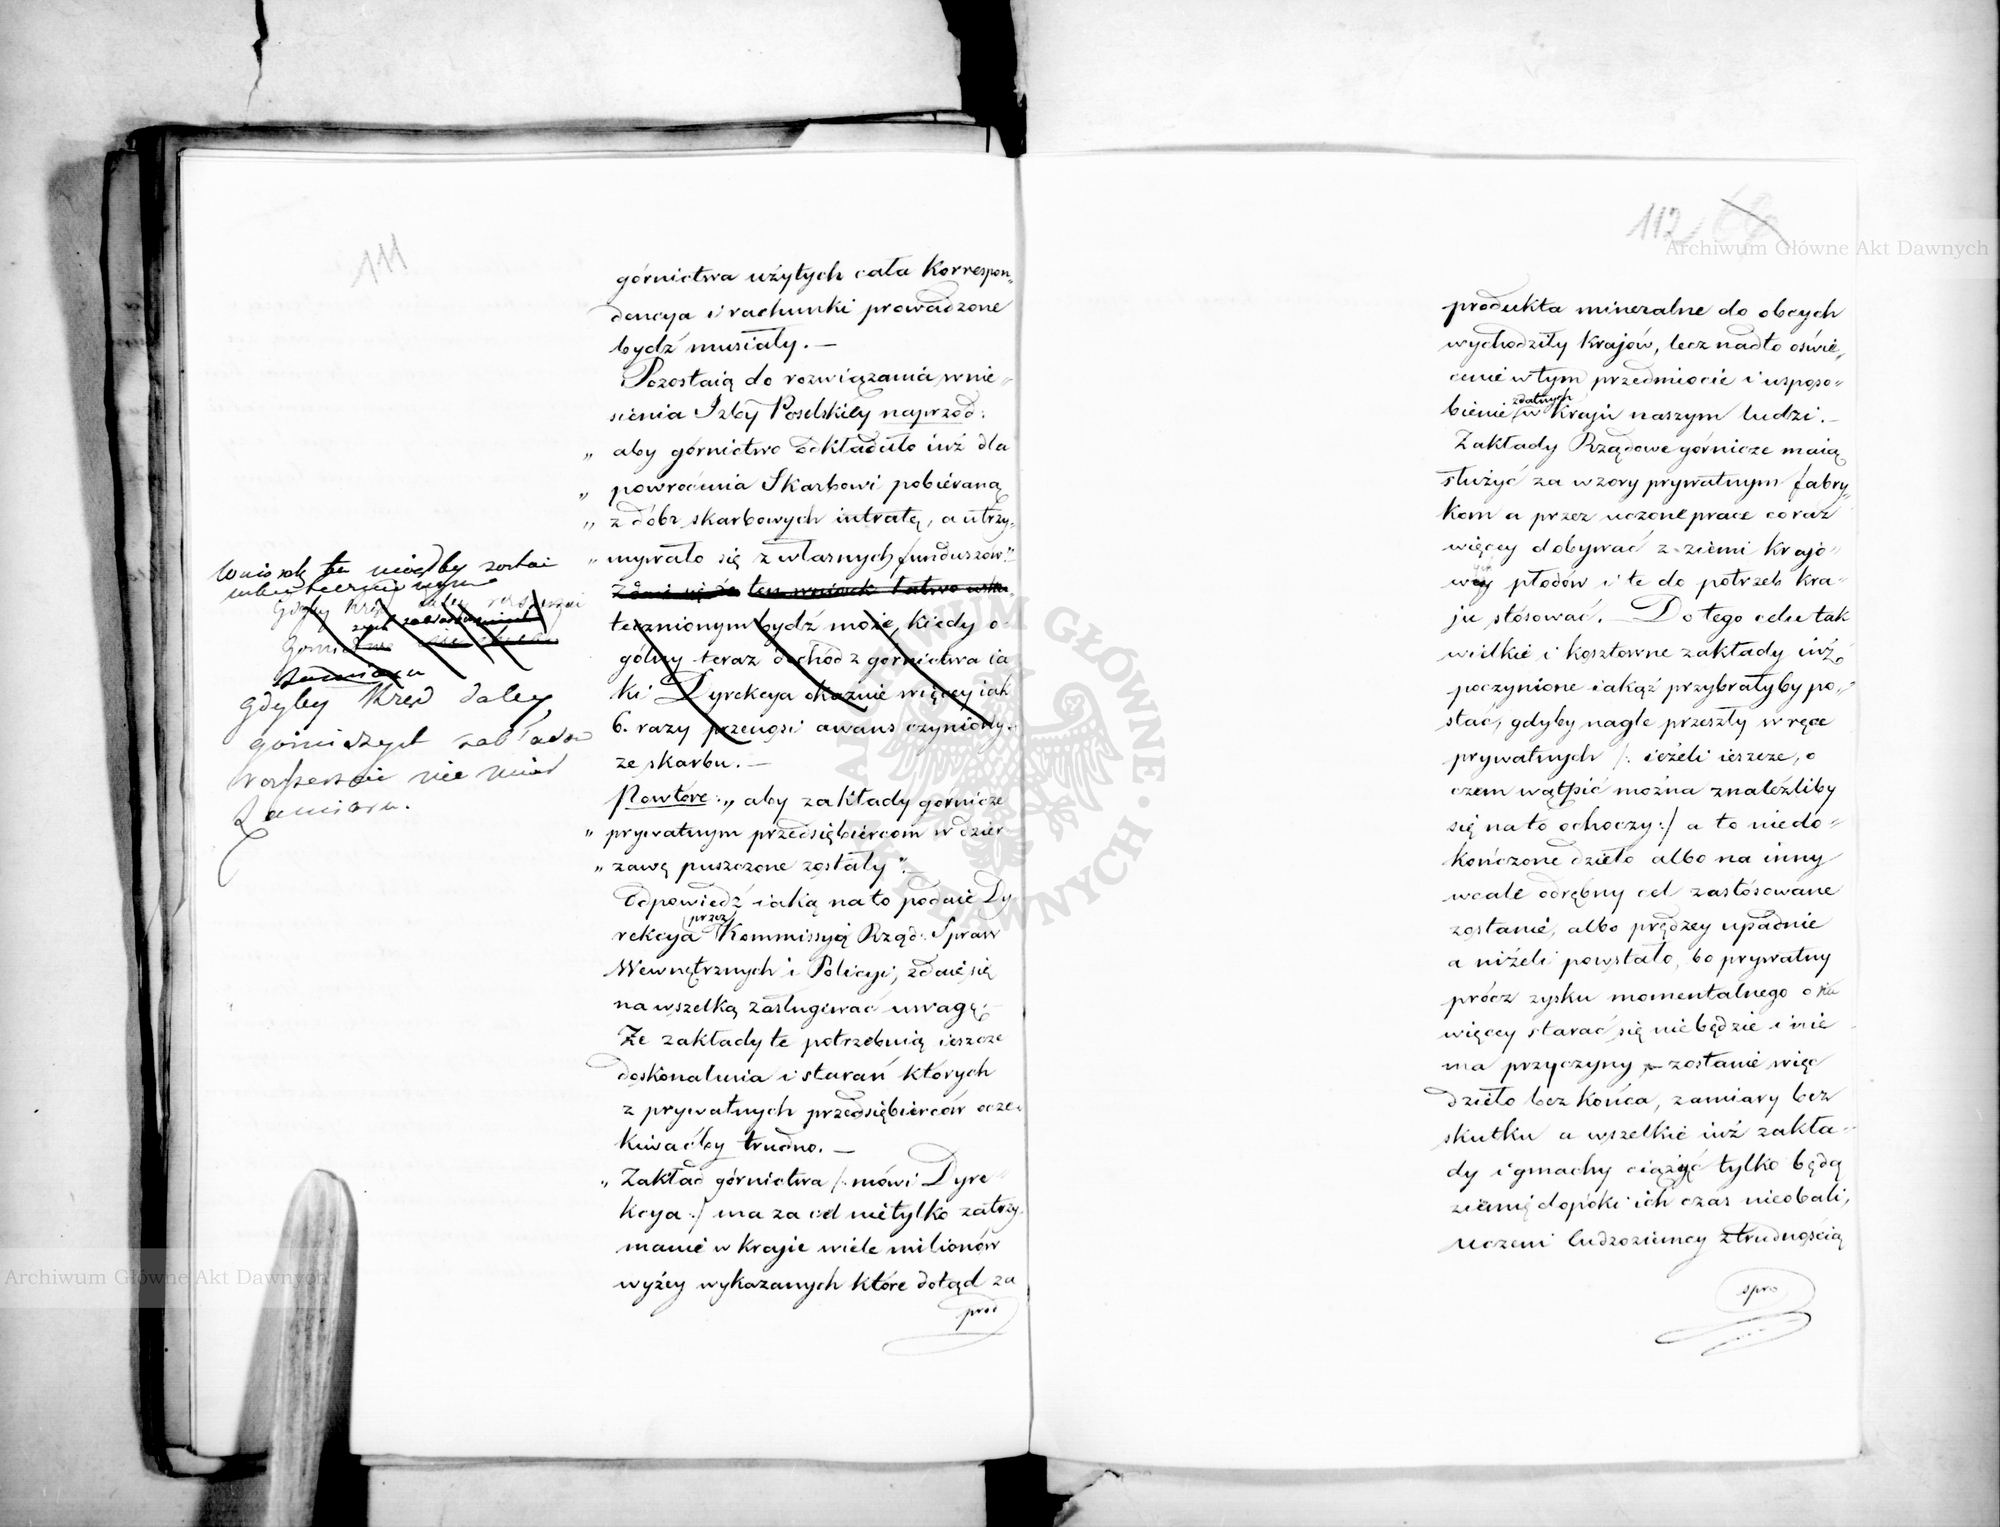 111
górnictwa użytych cała Korrespon„
dencya i rachunki prowadzone
bydź musiały. —
Pozostaią do rozwiązania wnie„
sienia Izby Poselskiey naprzod:
„ aby górnictwo odkładało iuż dla
„ powrócenia Skarbowi pobieraną
„ z dóbr skarbowych intratę, a utrzy„
„ mywało się z własnych funduszów"
Zdaie się że ten wniosek łatwo usku„
tecznionym bydź może, kiedy o„
gólny teraz dochód z górnictwa ia
ki Dyrekcya okaznie więcey iak
6. razy przenosi awans czyniony
ze skarbu. —
Powtóre: „ aby zakłady górnicze
„ prywatnym przedsiębiercom w dzier
„ zawę puszczone zostały".
Odpowiedź iaką na to podaie Dy
rekcya przez Kommissyią Rząd: Spraw
Wewnętrznych i Policyi, zdaie się
na wszelką zasługiwać uwagę;
Że zakłady te potrzebuią ieszcze
doskonalenia i starań których
z prywatnych przedsiębierców ocze„
kiwaćby trudno. —
„ Zakład górnictwa /: mówi Dyre„
kcya :/ ma za cel nietylko zatrzy
manie w kraiie wiele milionów
wyżey wykazanych które dotąd za
pro
Wniosek ten mógłby zostać
Gdyby Rząd daley
górniczych zakładów
rozszerzać nie miał
zamiaru.
112
produkta mineralne do obcych
wychodziły krajów, lecz nadto oświe„
cenie w tym przedmiocie i usposo„
bienie zdatnych w kraju naszym ludzi. —
Zakłady Rządowe górnicze maią
służyć za wzory prywatnym fabry„
kom a przez uczone prace coraz
więcey dobywać z ziemi krajo„
wey płodów i te do potrzeb kra„
ju stósować. — Do tego celu tak
wielkie i kosztowne zakłady iuż
poczynione iakąż przybrałyby po„
stać, gdyby nagle przeszły w ręce
prywatnych /: ieżeli ieszcze, o
czem wątpić można znaleźliby
się na to ochoczy :/ a to niedo„
kończone dzieło albo na inny
wcale odrębny cel zastósowane
zostanie, albo prędzey upadnie
a niżeli powstało, bo prywatny
prócz zysku momentalnego o nic
więcey starać się nie będzie i nie
ma przyczyny — zostanie więc
dzieło bez końca, zamiary bez
skutku a wszelkie iuż zakła„
dy i gmachy ciążyć tylko będą
ziemię dopóki ich czas nieobali,
Uczeni ludzoziemcy z trudnością
spro
Archiwum Główne Akt Dawnych
Archiwum Główne Akt Dawnych
ARCHIWUM GŁÓWNE AKT DAWNYCH